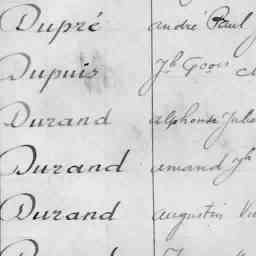 Dupré andré Paul
Dupuis Jh
Durand alphonse Jules
Durand amand Jh
Durand augustin